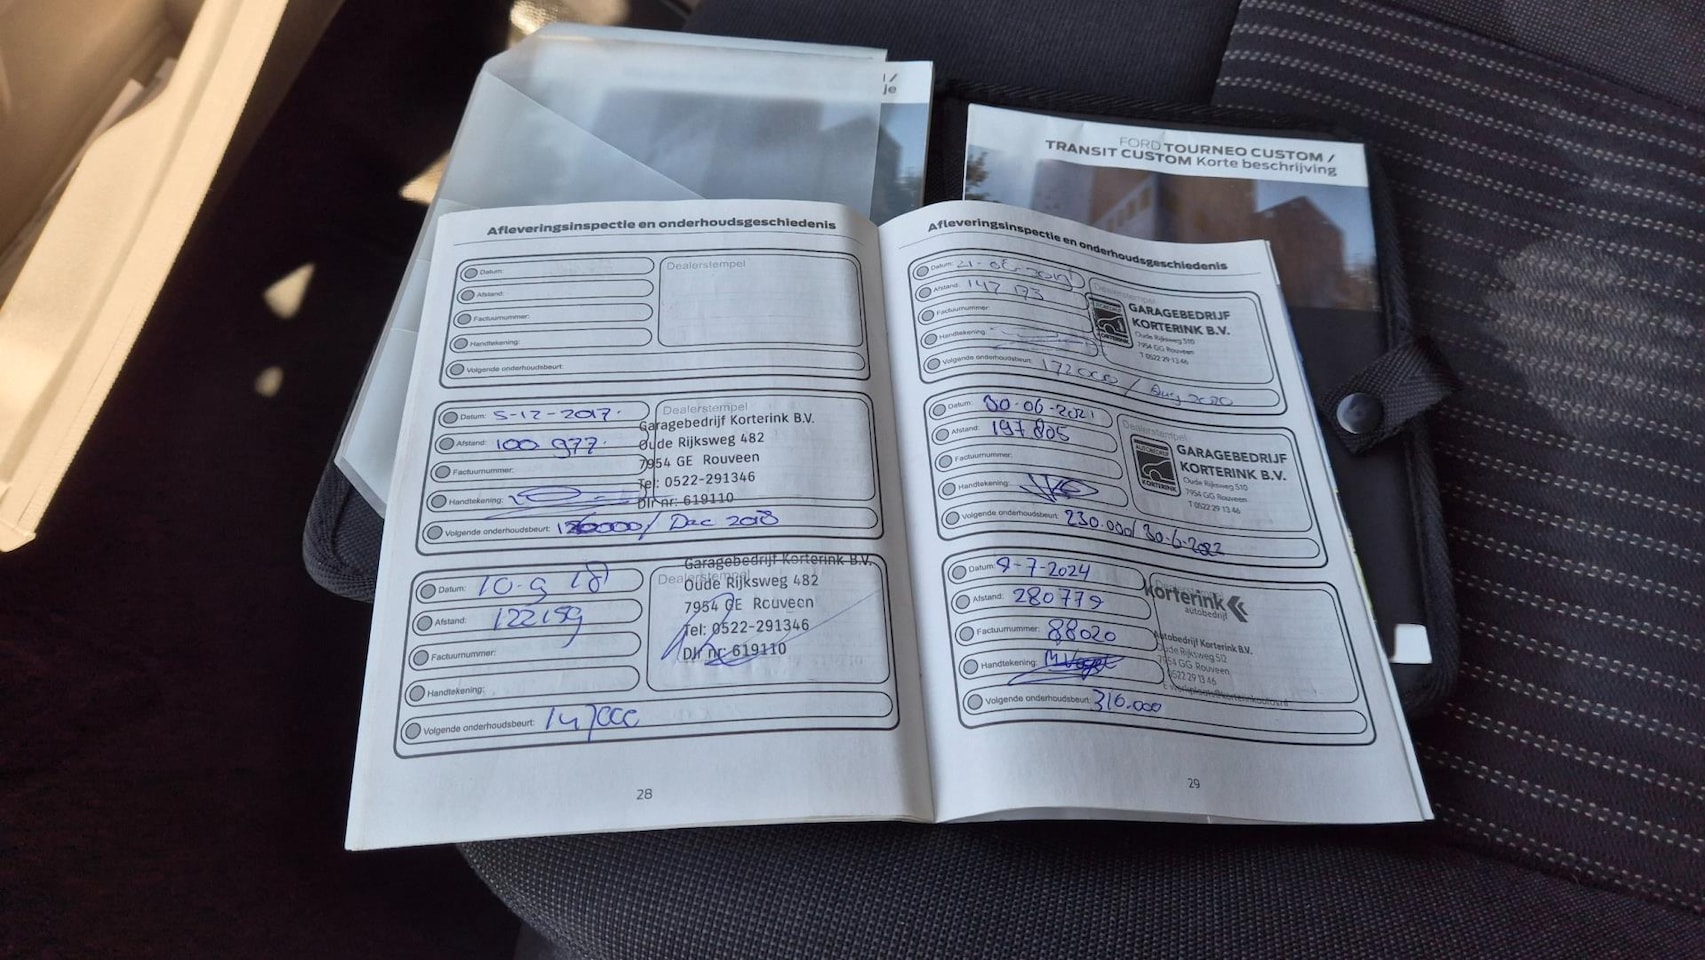 /
je
FORD TOURNEO CUSTOM /
TRANSIT CUSTOM Korte beschrijving
Afleveringsinspectie en onderhoudsgeschiedenis
Datum:
Afstand:
Factuurnummer:
Handtekening:
Volgende onderhoudsbeurt:
Dealerstempel
Datum: 5-12-2017.
Afstand: 100 977.
Factuurnummer:
Handtekening:
Volgende onderhoudsbeurt: / Dec 2018
Dealerstempel
Garagebedrijf Korterink B.V.
Oude Rijksweg 482
7954 GE Rouveen
Tel: 0522-291346
Dlr nr: 619110
Datum: 10-9 18
Afstand: 122159
Factuurnummer:
Handtekening:
Volgende onderhoudsbeurt: 147000
Dealerstempel
Garagebedrijf Korterink B.V.
Oude Rijksweg 482
7954 GE Rouveen
Tel: 0522-291346
Dlr nr: 619110
28
Afleveringsinspectie en onderhoudsgeschiedenis
Datum: 21-06-2019
Afstand: 147 173
Factuurnummer:
Handtekening:
Volgende onderhoudsbeurt: 172000 / Aug 2020
Dealerstempel
KORTERINK
GARAGEBEDRIJF
KORTERINK B.V.
Oude Rijksweg 510
7954 GG Rouveen
T 0522 29 13 46
Datum: 30-06-2021
Afstand: 197 805
Factuurnummer:
Handtekening:
Volgende onderhoudsbeurt: 230.000/ 30-6-2022
Dealerstempel
AUTOBEDRIJF
KORTERINK
GARAGEBEDRIJF
KORTERINK B.V.
Oude Rijksweg 510
7954 GG Rouveen
T 0522 29 13 46
Datum: 9-7-2024
Afstand: 280779
Factuurnummer: 88020
Handtekening:
Volgende onderhoudsbeurt: 310.000
Dealerstempel
korterink
autobedrijf
Autobedrijf Korterink B.V.
Oude Rijksweg 512
7954 GG Rouveen
0522 29 13 46
29